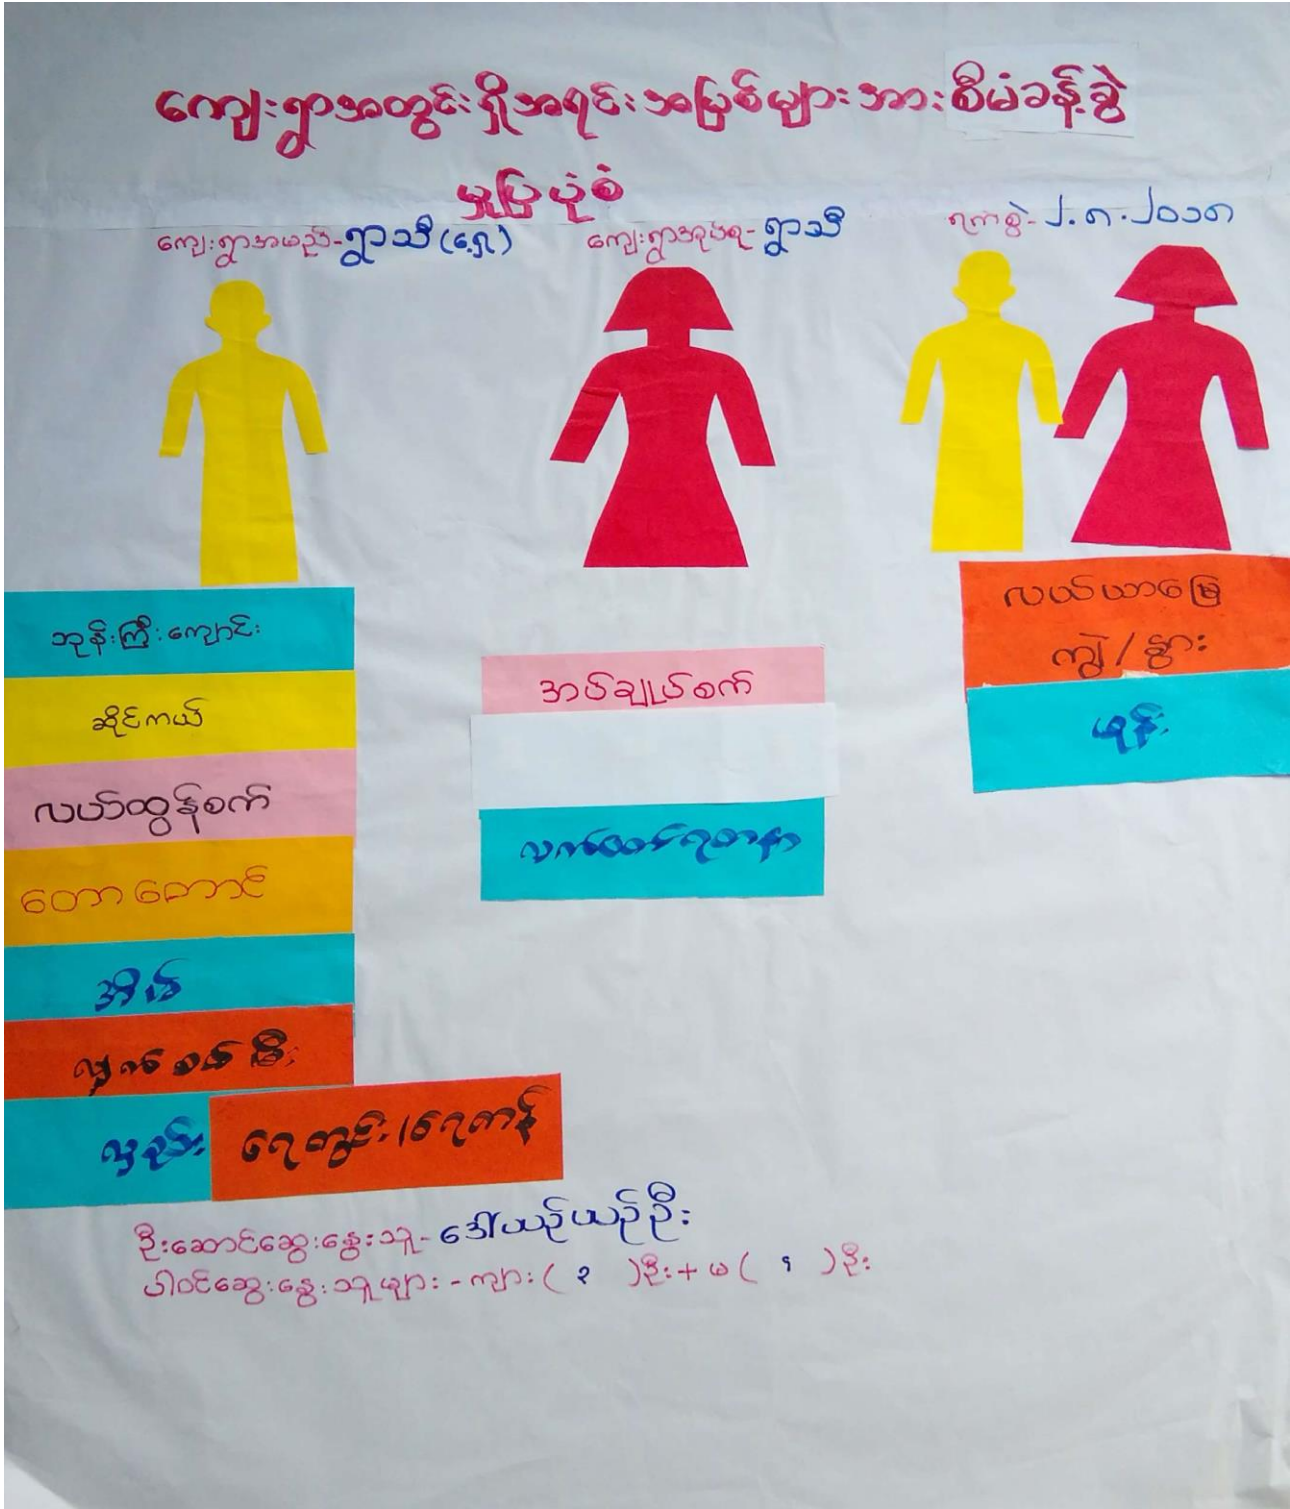 ကျေးရွာအတွင်းရှိအရင်းအမြစ်များအားစီမံခန့်ခွဲ
မှုပြပုံစံ
ကျေးရွာအမည်-ရွာသီ(ရှေ့) ကျေးရွာအုပ်စု-ရွာသီ ရက်စွဲ-၂.၈.၂၀၁၈
ဘုန်းကြီးကျောင်း
ဆိုင်ကယ်
လယ်ထွန်စက်
တောတောင်
အိမ်
လျှက်စစ်မီး
လှည်း
ရေတွင်း/ရေကန်
အပ်ချုပ်စက်
လက်ဝတ်ရတနာ
လယ်ယာမြေ
ကျွဲ/နွား
ဖုန်း
ဦးဆောင်ဆွေးနွေးသူ-ဒေါ်ယဉ်ယဉ်ဦး
ပါဝင်ဆွေးနွေးသူများ-ကျား( )ဦး+မ( )ဦး